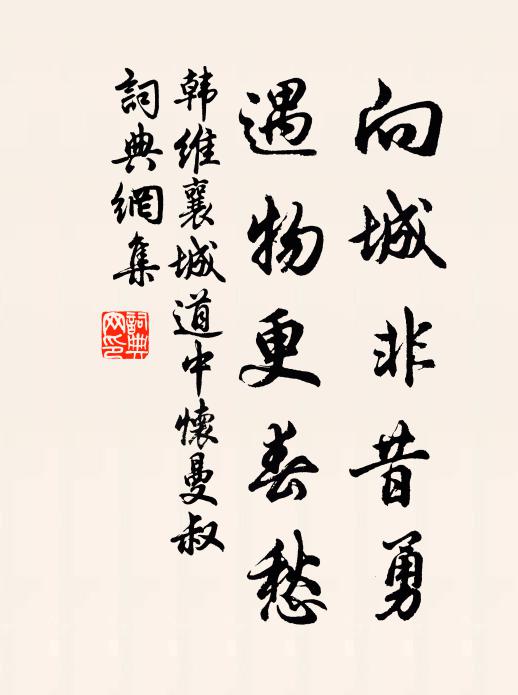 向城非昔勇
遇物更春愁
韩维襄城道中懷曼叔
詞典網集
詞典
网印